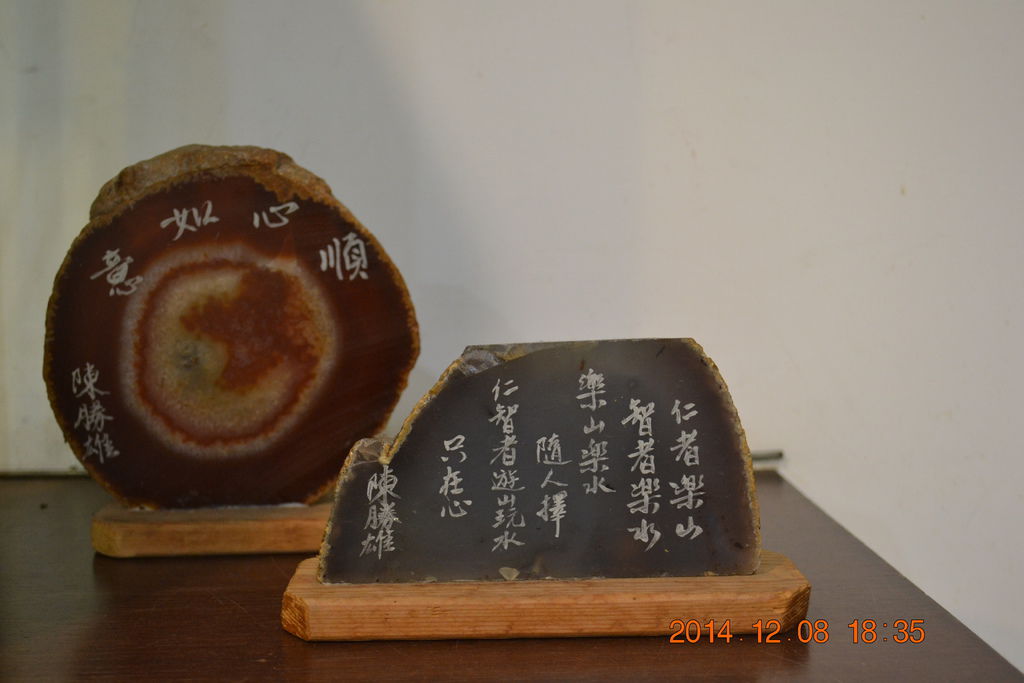 意如心順
陳勝雄
仁者樂山
智者樂水
樂山樂水
隨人擇
仁智者遊山玩水
只在心
陳勝雄
2014.12.08 18:35